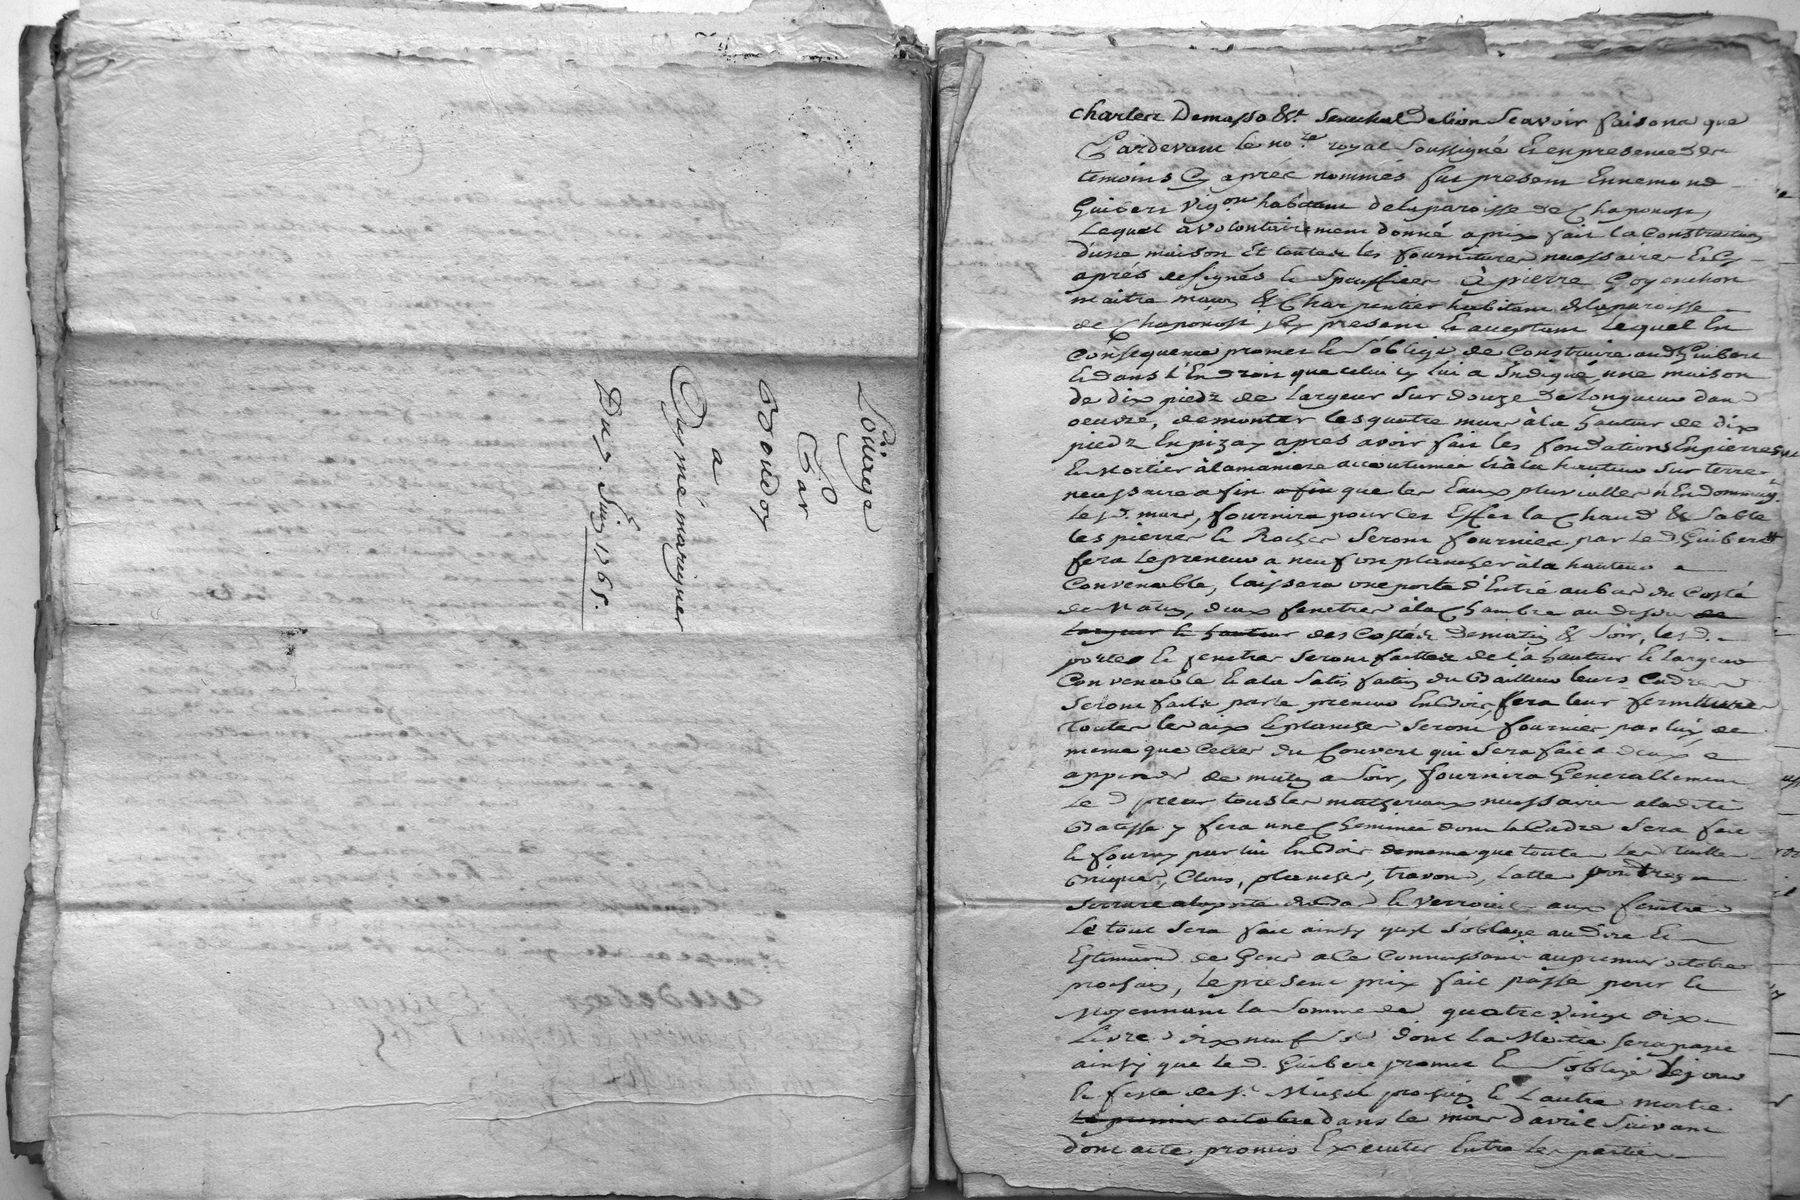 Loüage
Par
Boudoy
a
Desmé marignier
Du 7. Juin 1765.
Charles Demasso &c. Senechal De lion Scavoir faisons que
Pardevant le no.re royal Soussigné & en presence des
temoins Cy aprés nommés fut present Ennemond
Guibert vig.on habitant de la paroisse de Chaponost,
Lequel a volontairement donné a prix fait la Construction
d'une maison Et toutes les fournitures necessaires & Cy
aprés designés & Speciffiées à pierre Goyenchon
maitre maçon & Charpentier habitant de la paroisse
de Chaponost icy present & acceptant Lequel En
Consequence promet & S'oblige de Construire aud. Guibert
& dans L'Endroit que celui cy lui a Indiqué, une maison
de dix piedz de largeur Sur douze de Longueur dans
oeuvre, de monter les quatre murs à la hauteur de dix
piedz En pizay apres avoir fait les fondations En pierres
& Mortier à la maniere accoutumée & à la hauteur Sur terre
necessaire afin afin que les Eaux pluvialles n'Endommag.t
les d. murs, fournira pour Cet Effet la Chaud & Sable
les pierres & Rocher Seront fournies par le d. Guibert
fera le preneur a neuf un plancher à la hauteur
Convenable, laissera une porte d'Entrée au bas du Costé
de Matin, deux fenetres à la Chambre au dessus de
largeur & hauteur des Costés de matin & Soir, les d.
portes & fenetres Seront faittes de la hauteur & largeur
Convenable & a la Satisfaction du Bailleur leurs Cadres
Seront faits par le preneur En Bois, fera leur fermetures
toutes les aix & plancher Seront fournies par lui, de
meme que Celles du Couvert qui Sera fait a deux
appends de matin a Soir, fournira Generallement
Le d. preneur tous les matheriaux necessaires a la dite
Batisse y fera une Cheminée dont le Cadre Sera fait
& fourny par lui En Bois de meme que toutes les tuilles
briques, Clous, plancher, travons, Lattes poutres
Serrure a la porte du bas & verrouils aux fenetres
Le tout Sera fait ainsy qu'il S'oblige au dire &
Estimation de Gens a Ce Connoissants au premier octobre
prochain, le present prix fait passé pour &
Moyennant la Somme de quatre vingt dix
Livres dix neuf sols dont la Moitié Sera payée
ainsy que le d. Guibert promet & S'oblige le jour
& feste de St. Michel prochain & L'autre moitié
Le premier octobre dans le mois d'avril Suivant
dont acte promis Executer Entre les parties